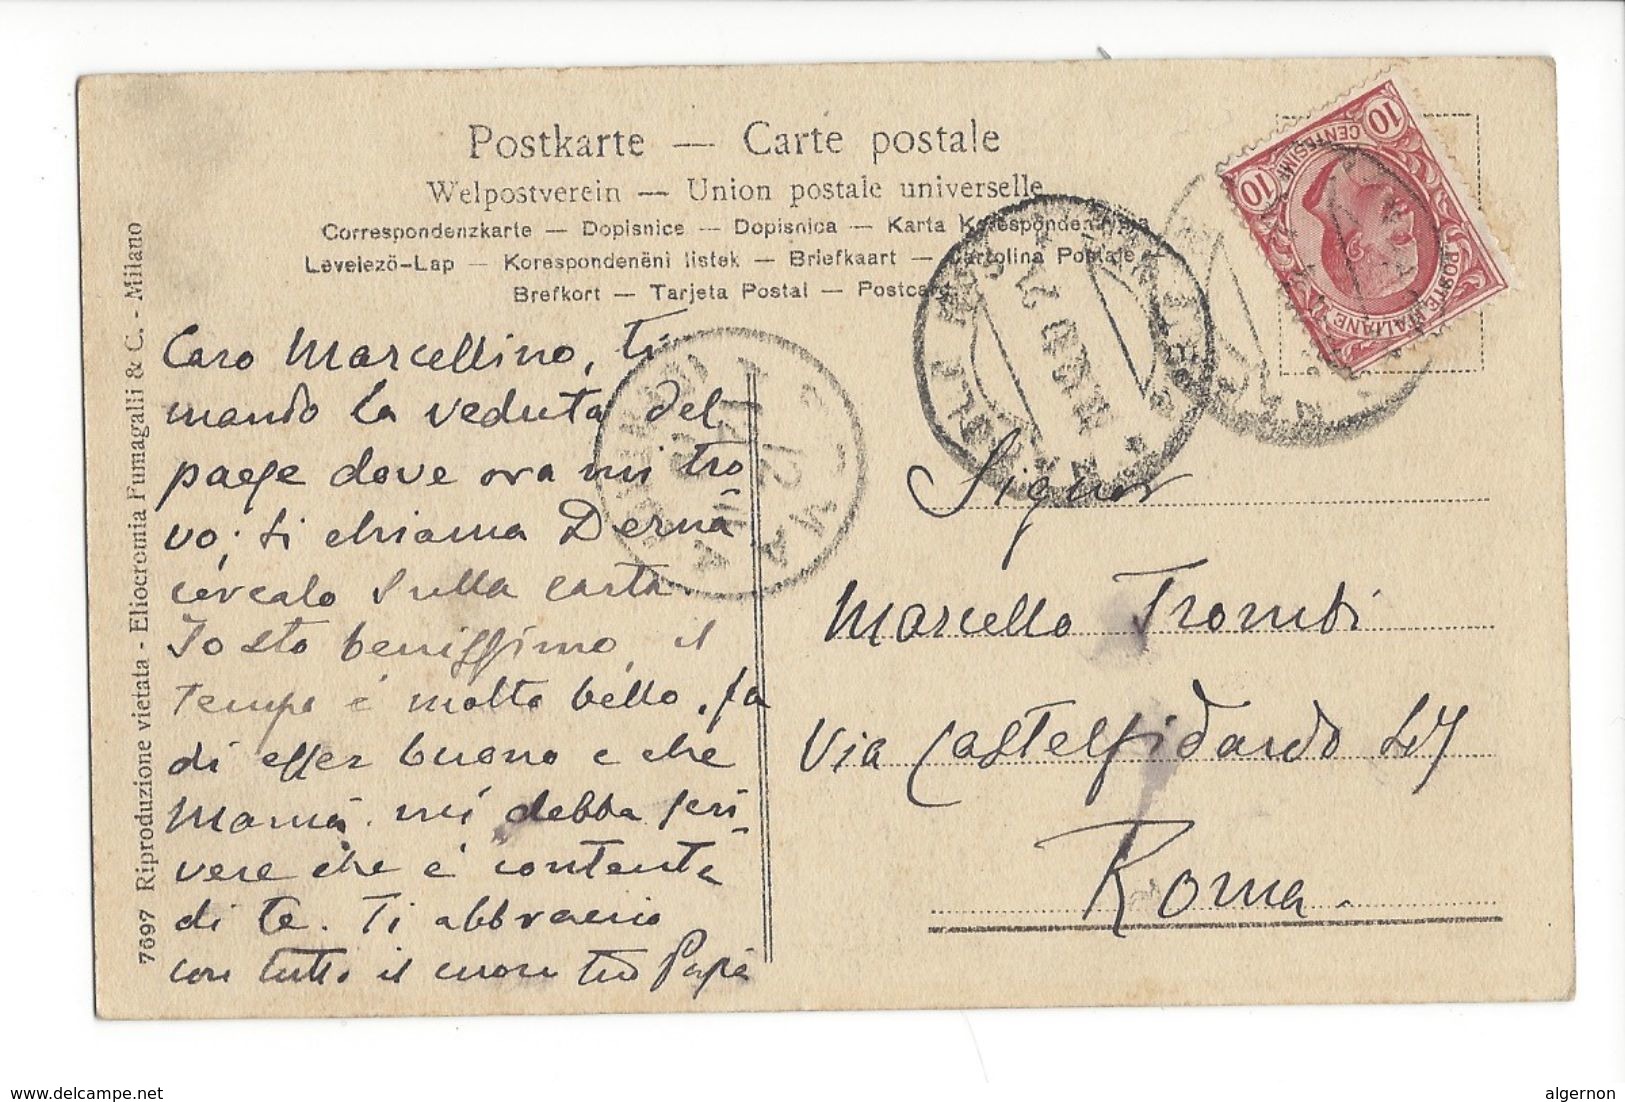 Postkarte — Carte postale
Welpostverein — Union postale universelle
Correspondenzkarte — Dopisnice — Dopisnica — Karta Korespondencyjna
Levelező-Lap — Korespondenĕni listek — Briefkaart — Cartolina Postale
Brefkort — Tarjeta Postal — Postcard
7697 Riproduzione vietata - Eliocromia Fumagalli & C. - Milano
10 CENTESIMI 10
POSTE ITALIANE
Caro Marcellino, ti
mando la veduta del
paese dove ora mi tro
vo; si chiama Derna
cercalo sulla carta.
Io sto benissimo, il
tempo è molto bello. fa
di esser buono e che
Mamà mi debba scri-
vere che è contenta
di te. Ti abbraccio
con tutto il cuore tuo Papà
Signor
Marcello Trombi
Via Castelfidardo
Roma.
www.delcampe.net
algernon